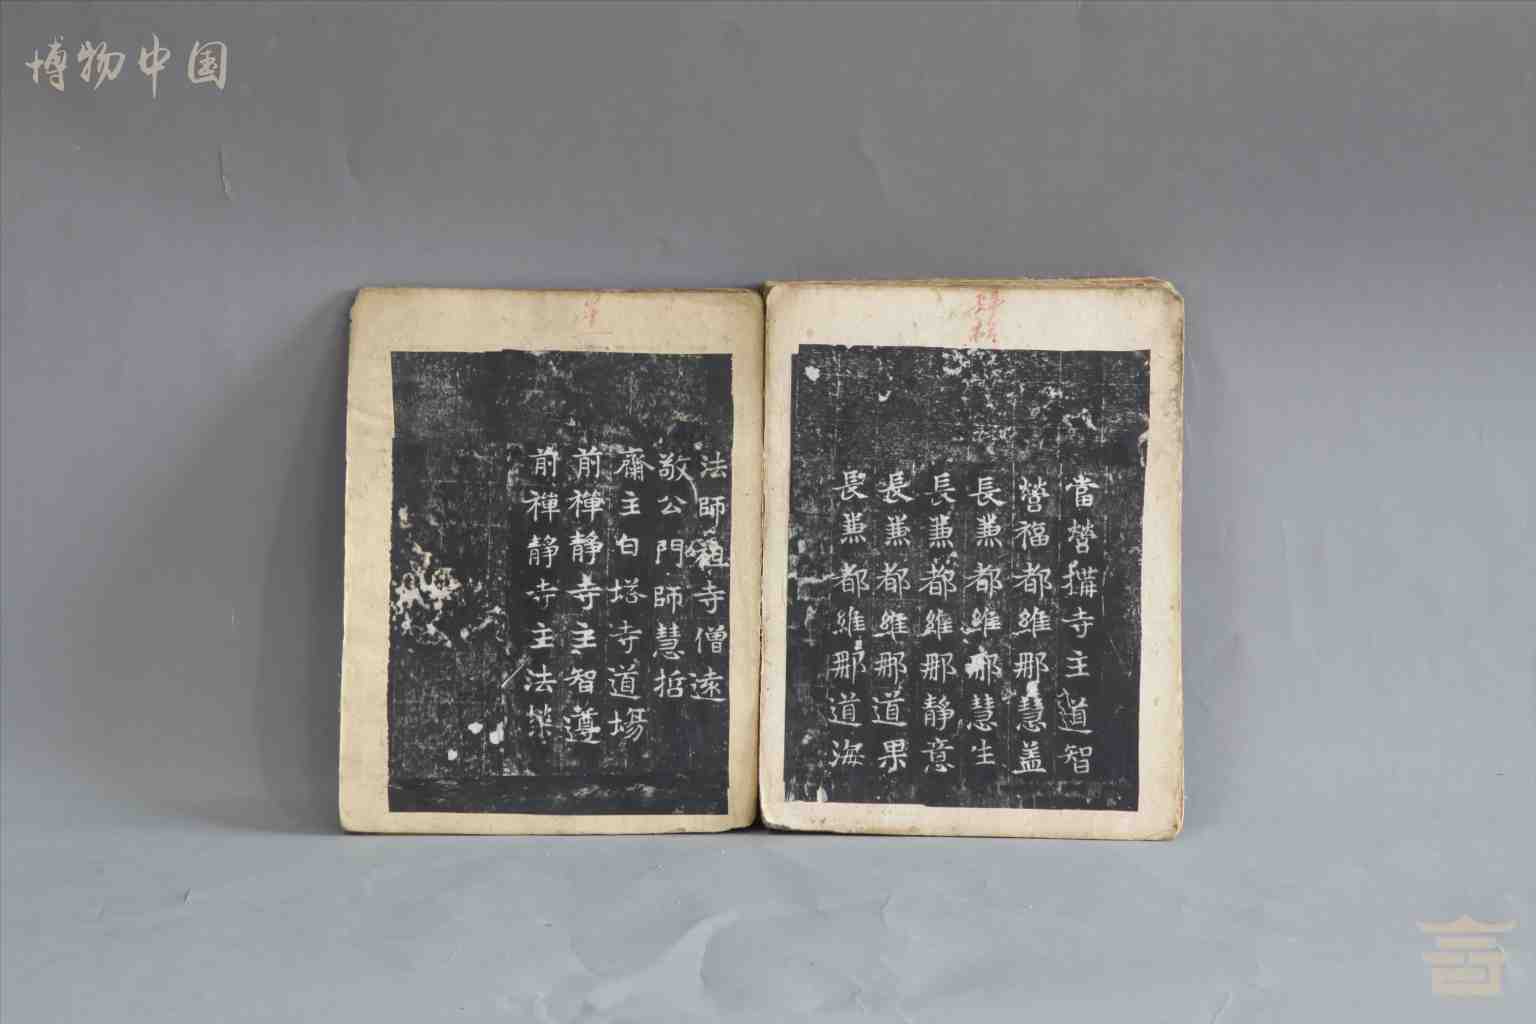 博物中国
當營構寺主道智
營福都維那慧蓋
長兼都維那慧生
長兼都維那靜意
長兼都維那道果
長兼都維那道海
法師祖寺僧遠
敬公門師慧哲
齋主白塔寺道場
前禪靜寺主智遵
前禪靜寺主法榮